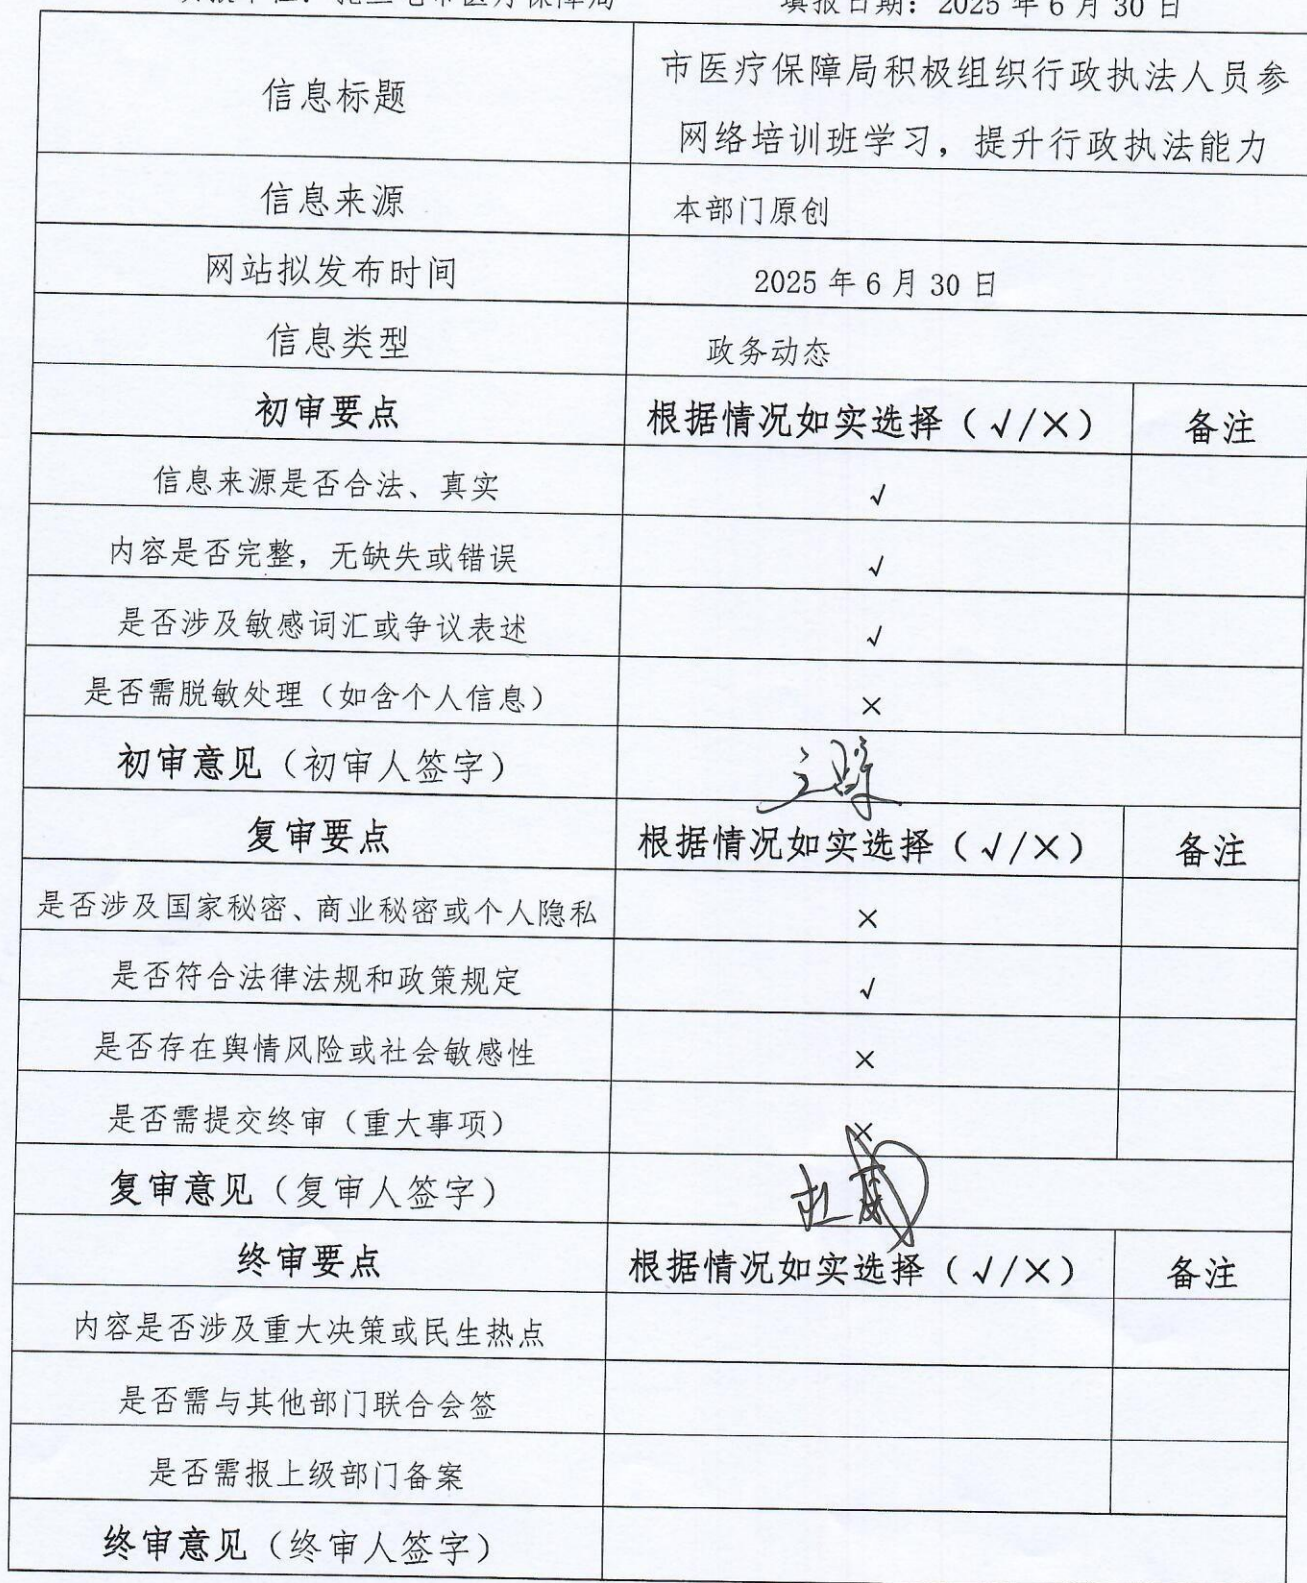 填报日期：2025 年 6 月 30 日
信息标题
市医疗保障局积极组织行政执法人员参
网络培训班学习，提升行政执法能力
信息来源
本部门原创
网站拟发布时间
2025 年 6 月 30 日
信息类型
政务动态
初审要点
根据情况如实选择（√/×）
备注
信息来源是否合法、真实
√
内容是否完整，无缺失或错误
√
是否涉及敏感词汇或争议表述
√
是否需脱敏处理（如含个人信息）
×
初审意见（初审人签字）
复审要点
根据情况如实选择（√/×）
备注
是否涉及国家秘密、商业秘密或个人隐私
×
是否符合法律法规和政策规定
√
是否存在舆情风险或社会敏感性
×
是否需提交终审（重大事项）
×
复审意见（复审人签字）
终审要点
根据情况如实选择（√/×）
备注
内容是否涉及重大决策或民生热点
是否需与其他部门联合会签
是否需报上级部门备案
终审意见（终审人签字）